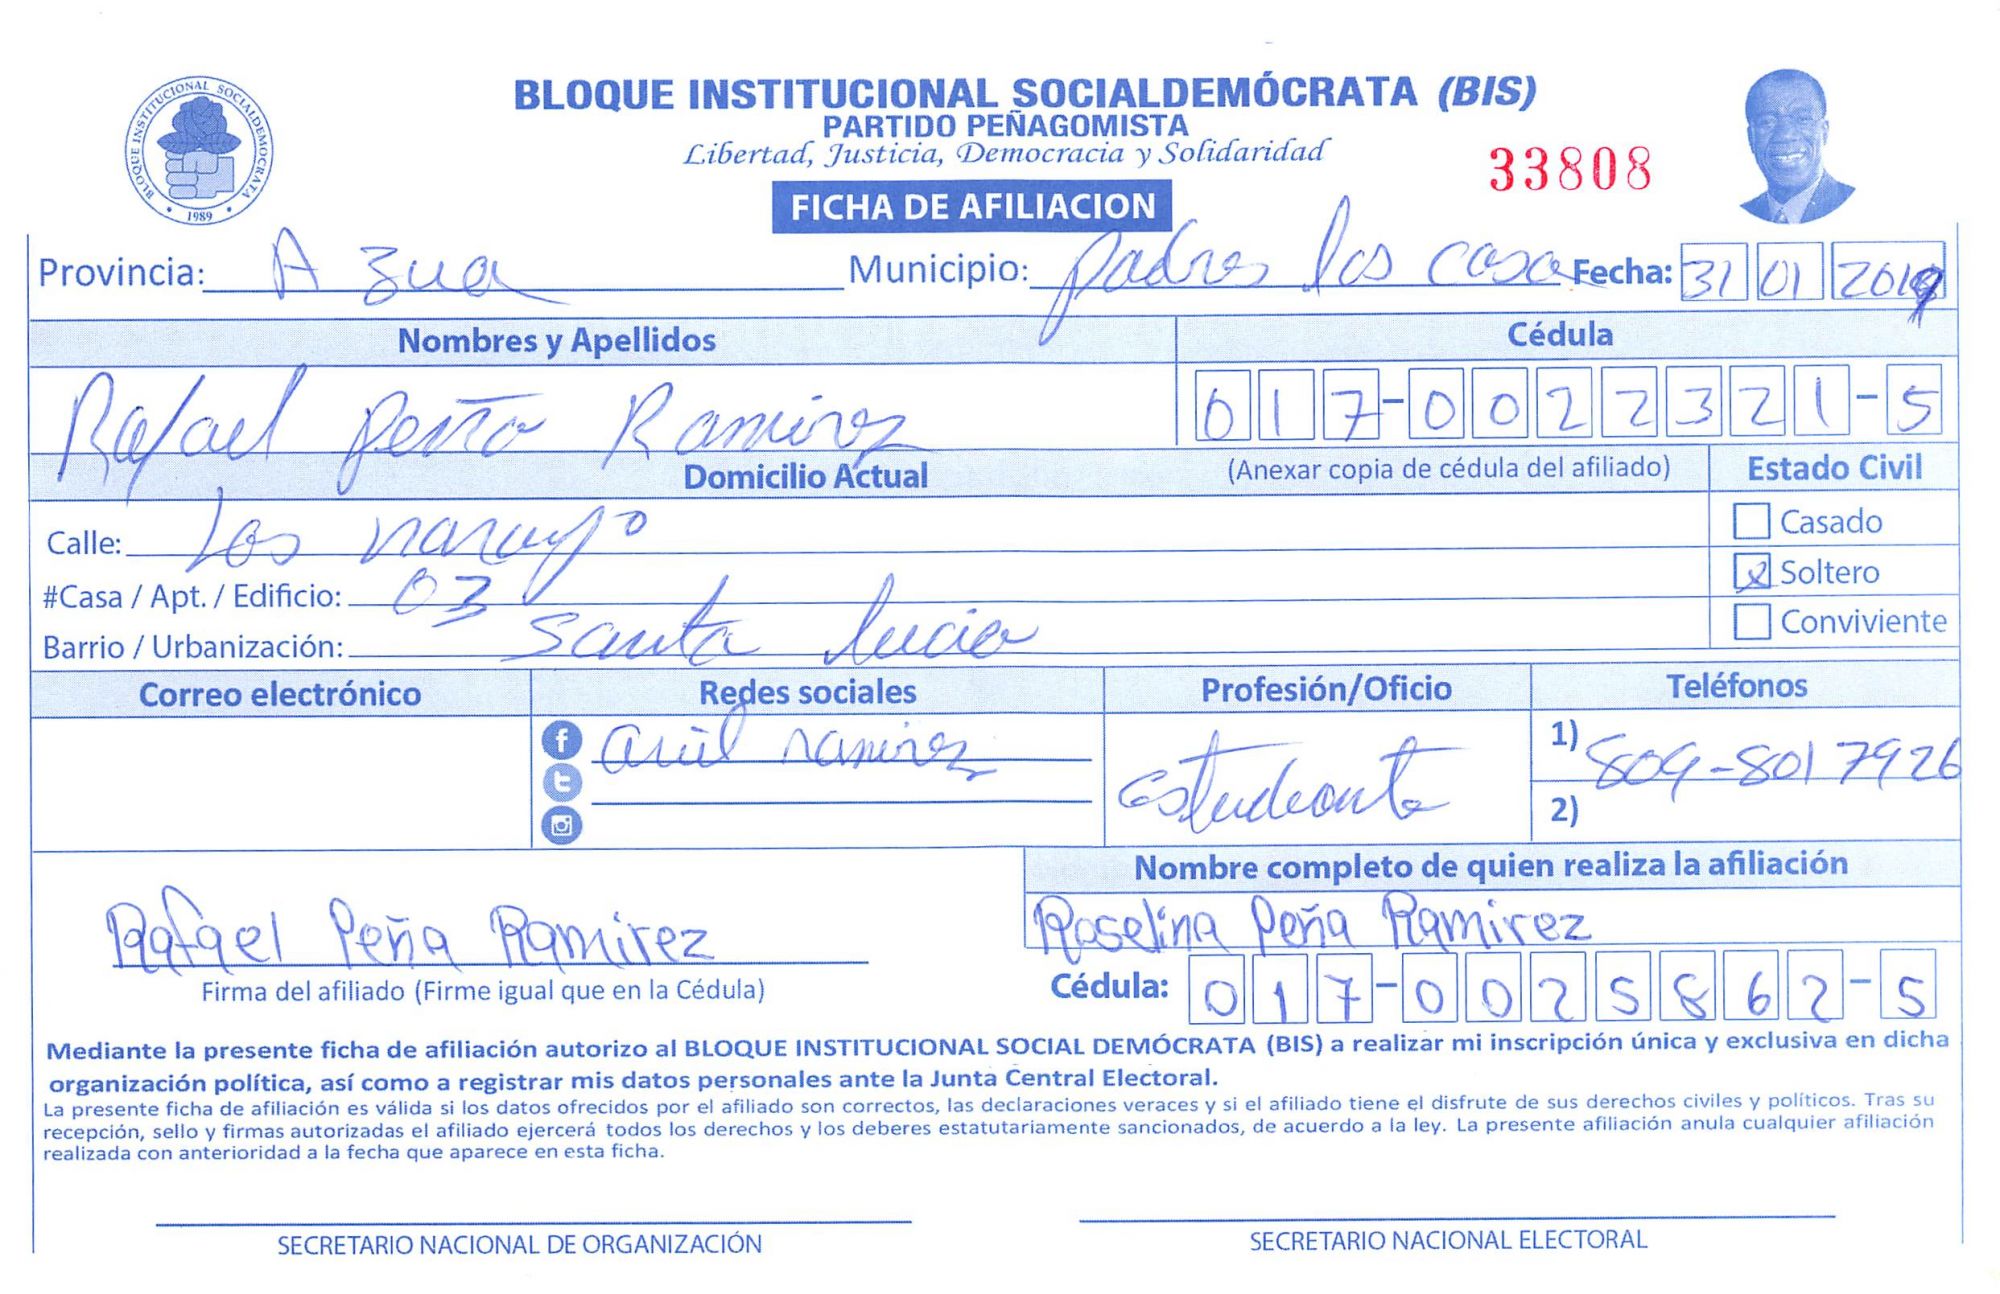 BLOQUE INSTITUCIONAL SOCIALDEMÓCRATA
1989
BLOQUE INSTITUCIONAL SOCIALDEMÓCRATA (BIS)
PARTIDO PEÑAGOMISTA
Libertad, Justicia, Democracia y Solidaridad
33808
FICHA DE AFILIACION
Provincia: Azua Municipio: padres las casa Fecha: 31 01 2019
Nombres y Apellidos Cédula
Rafael peña Ramirez 017-0022321-5
Domicilio Actual (Anexar copia de cédula del afiliado) Estado Civil
Calle: Los naranjo Casado
#Casa / Apt. / Edificio: 03 x Soltero
Barrio / Urbanización: Santa lucia Conviviente
Correo electrónico Redes sociales Profesión/Oficio Teléfonos
f ariel ramirez estudiante 1) 809-8017926
2)
Nombre completo de quien realiza la afiliación
Rafael Peña Ramirez Roselina Peña Ramirez
Firma del afiliado (Firme igual que en la Cédula) Cédula: 017-0025862-5
Mediante la presente ficha de afiliación autorizo al BLOQUE INSTITUCIONAL SOCIAL DEMÓCRATA (BIS) a realizar mi inscripción única y exclusiva en dicha
organización política, así como a registrar mis datos personales ante la Junta Central Electoral.
La presente ficha de afiliación es válida si los datos ofrecidos por el afiliado son correctos, las declaraciones veraces y si el afiliado tiene el disfrute de sus derechos civiles y políticos. Tras su
recepción, sello y firmas autorizadas el afiliado ejercerá todos los derechos y los deberes estatutariamente sancionados, de acuerdo a la ley. La presente afiliación anula cualquier afiliación
realizada con anterioridad a la fecha que aparece en esta ficha.
SECRETARIO NACIONAL DE ORGANIZACIÓN SECRETARIO NACIONAL ELECTORAL